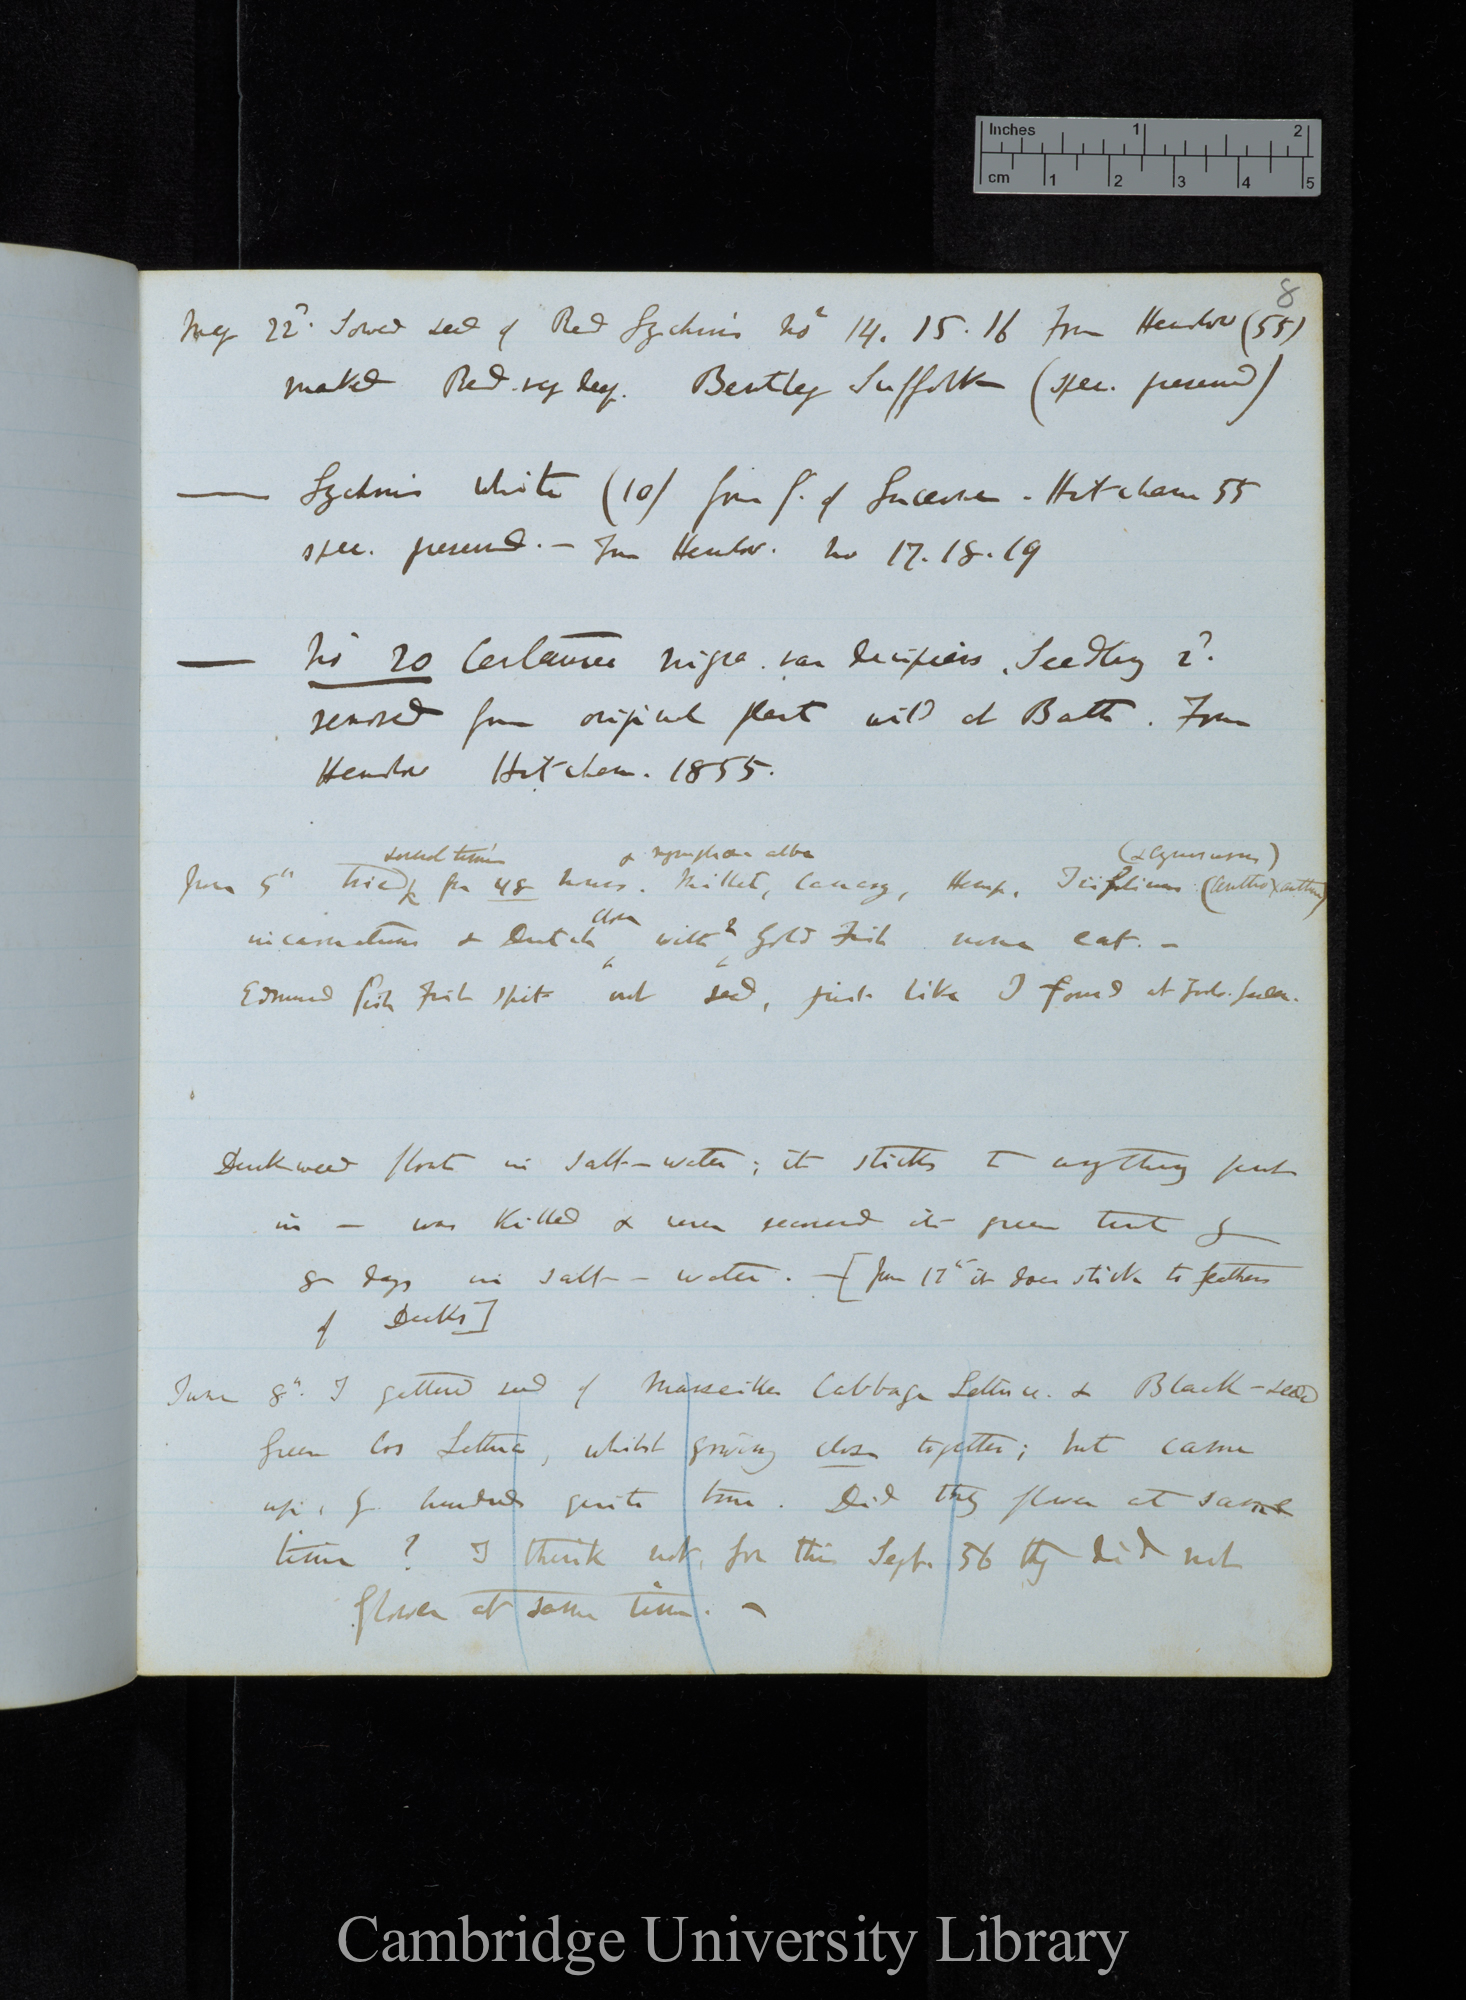 Inches 1 2
cm 1 2 3 4 5
8
May 22d. Sowed seed of Red Lychnis Nos 14. 15. 16 from Henslow (55)
marked Red. Bentley Suffolk (spec. preserved)
— Lychnis white (10) from f. of Lucerne. Hitcham 55
spec. preserved. — from Henslow. No 17. 18. 19
— No 20 Centaurea nigra. var decipiens. Seedling 2d.
removed from original plant wild at Bath. From
Henslow Hitcham. 1855.
several times & nymphæa alba
June 5th tried for 48 hours. Millet, Canary, Hemp, Trifolium (Anthoxanthum)
incarnatum & Dutch clover with Gold Fish none eat. —
Edmund fish spits out seed, just like I found at Zoolog. Garden.
Duckweed floats in salt-water; it sticks to anything put
in — was killed & never recovered its green tint by
8 days in salt-water. — [June 17th it does stick to feathers
of Ducks]
June 8th. I gathered seed of Marseilles Cabbage Lettuce & Black-seeded
Green Cos Lettuce, whilst growing close together; but came
up, by hundreds quite true. Did they flower at same
time? I think not, for this Sept. 56 they did not
flower at same time. —
Cambridge University Library